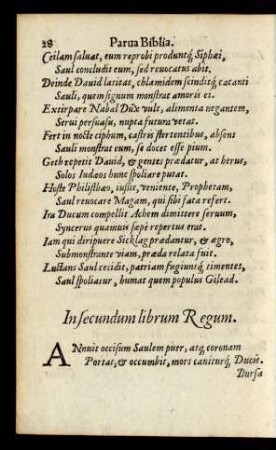 28 Parua Biblia.
Ceilam saluat, eum reprobi produntq́; Siphæi,
Saul concludit eum, sed reuocatus abit.
Deinde Dauid latitat, chlamidem scinditq́; cacanti
Sauli, quem signum monstrat amoris ei.
Extirpare Nabal Dux vult, alimenta negantem,
Serui persuasu, nupta futura vetat.
Fert in nocte ciphum, castris stertentibus, absens
Sauli monstrat eum, se docet esse pium.
Geth repetit Dauid, & gentes prædatur, at herus,
Solos Iudæos hunc spoliare putat.
Hoste Philisthæo, iussit, veniente, Prophetam,
Saul reuocare Magam, qui sibi fata refert.
Ira Ducum compellit Achem dimittere seruum,
Syncerus quamuis sæpè repertus erat.
Iam qui diripuere Sicklag prædantur, & ægro,
Submonstrante viam, præda relata fuit.
Luctans Saul cecidit, patriam fugiunq́; timentes,
Saul spoliatur, humat quem populus Gilead.
In secundum librum Regum.
ANnuit occisum Saulem puer, atq́; coronam
Portat, & occumbit, mors caniturq́; Ducis.
Bursa